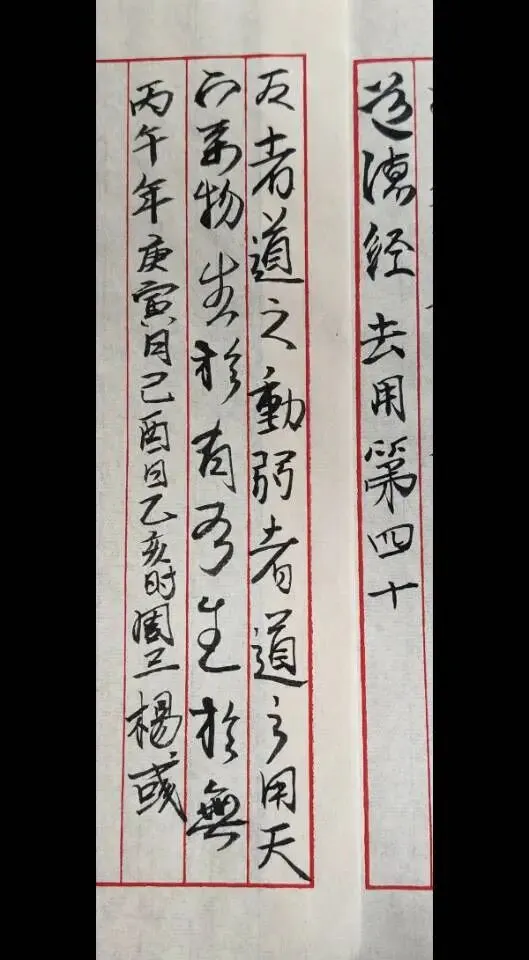 道德经 去用第四十
反者道之動弱者道之用天
下萬物生於有有生於無
丙午年庚寅月己酉日乙亥时周三楊彧